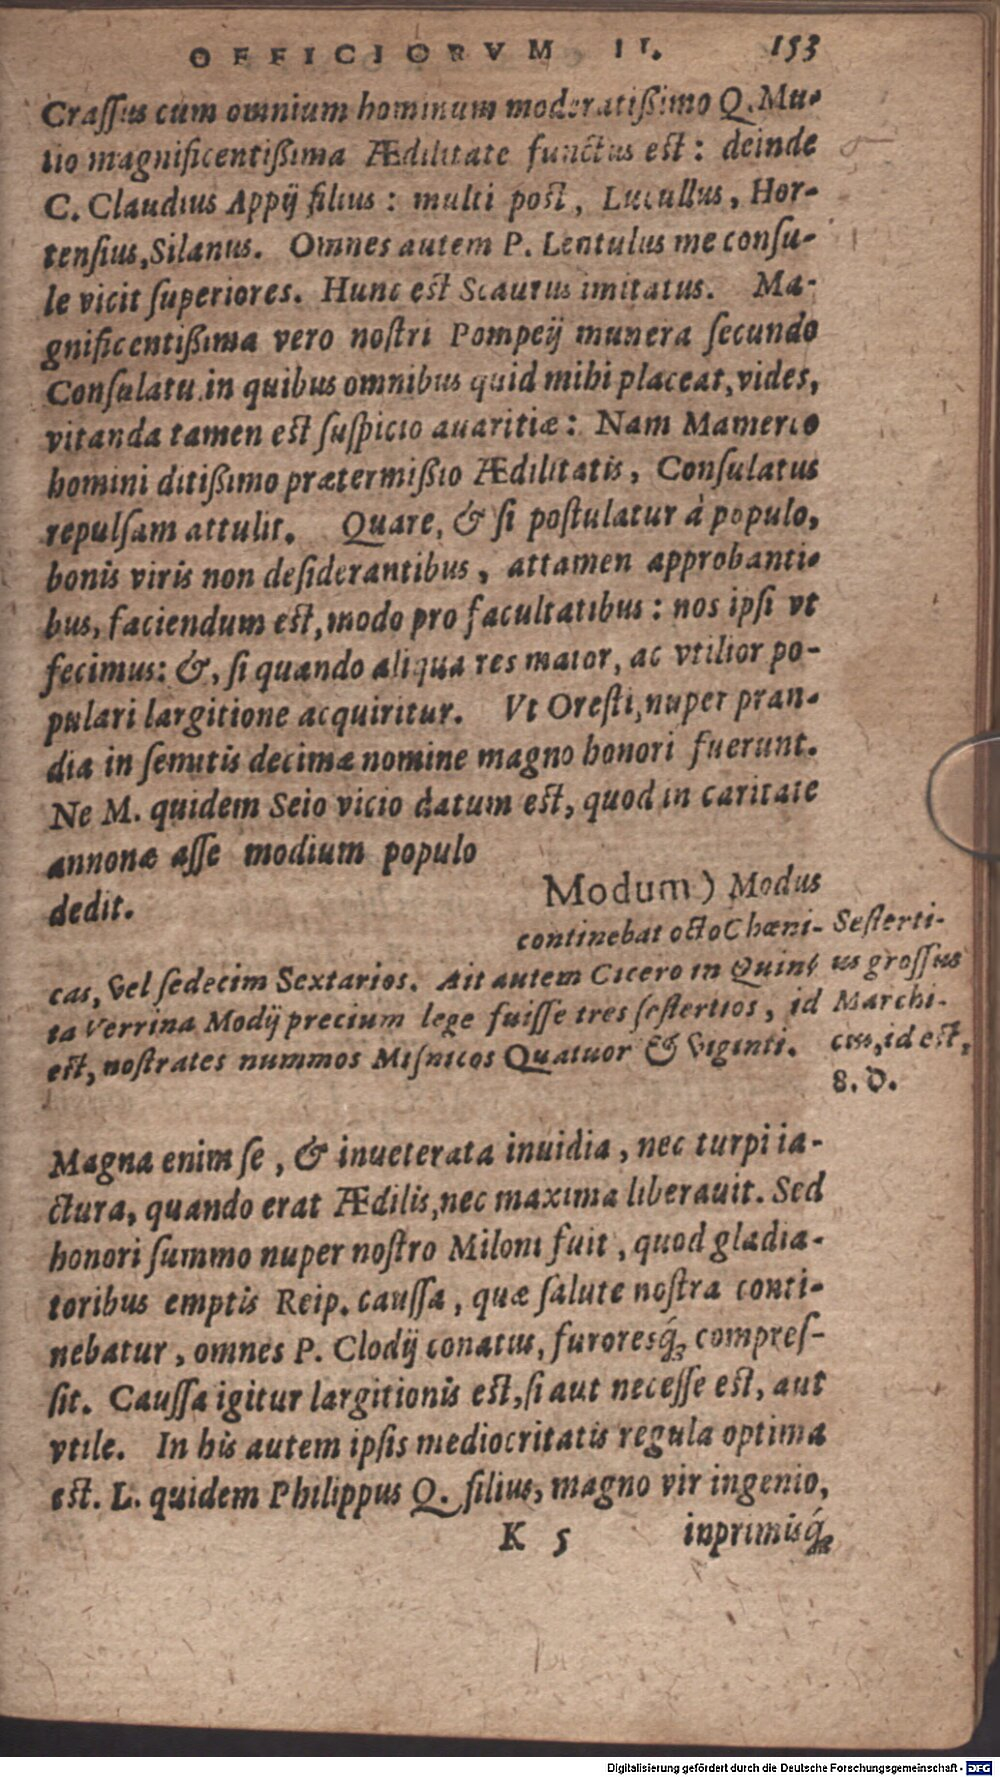 OFFICIORVM II. 153
Craſſus cum omnium hominum moderatißimo Q. Mu-
tio magnificentißima Ædilitate functus est: deinde
C. Claudius Appij filius: multi post, Lucullus, Hor-
tenſius, Silanus. Omnes autem P. Lentulus me conſu-
le vicit ſuperiores. Hunc est Scaurus imitatus. Ma-
gnificentißima vero noſtri Pompeij munera ſecundo
Conſulatu in quibus omnibus quid mihi placeat, vides,
vitanda tamen est ſuſpicio auaritiæ: Nam Mamerco
homini ditißimo prætermißio Ædilitatis, Conſulatus
repulſam attulit. Quare, & ſi poſtulatur à populo,
bonis viris non deſiderantibus, attamen approbanti-
bus, faciendum est, modo pro facultatibus: nos ipſi vt
fecimus: &, ſi quando aliqua res maior, ac vtilior po-
pulari largitione acquiritur. Vt Oreſti, nuper pran-
dia in ſemitis decimæ nomine magno honori fuerunt.
Ne M. quidem Seio vicio datum est, quod in caritate
annonæ aſſe modium populo
dedit.
Modum) Modus
continebat octo Chœni-
cas, vel ſedecim Sextarios. Ait autem Cicero in Quin-
ta Verrina Modij precium lege fuiſſe tres ſeſtertios, id
est, noſtrates nummos Miſnicos Quatuor & viginti.
Seſterti-
us groſſus
Marchi-
cus, id est,
8. d.
Magna enim ſe, & inueterata inuidia, nec turpi ia-
ctura, quando erat Ædilis, nec maxima liberauit. Sed
honori ſummo nuper noſtro Miloni fuit, quod gladia-
toribus emptis Reip. cauſſa, quæ ſalute noſtra conti-
nebatur, omnes P. Clodij conatus, furoresq́ꝫ compreſ-
ſit. Cauſſa igitur largitionis est, ſi aut neceſſe est, aut
vtile. In his autem ipſis mediocritatis regula optima
est. L. quidem Philippus Q. filius, magno vir ingenio,
K 5 inprimisq́ꝫ
Digitalisierung gefördert durch die Deutsche Forschungsgemeinschaft - DFG